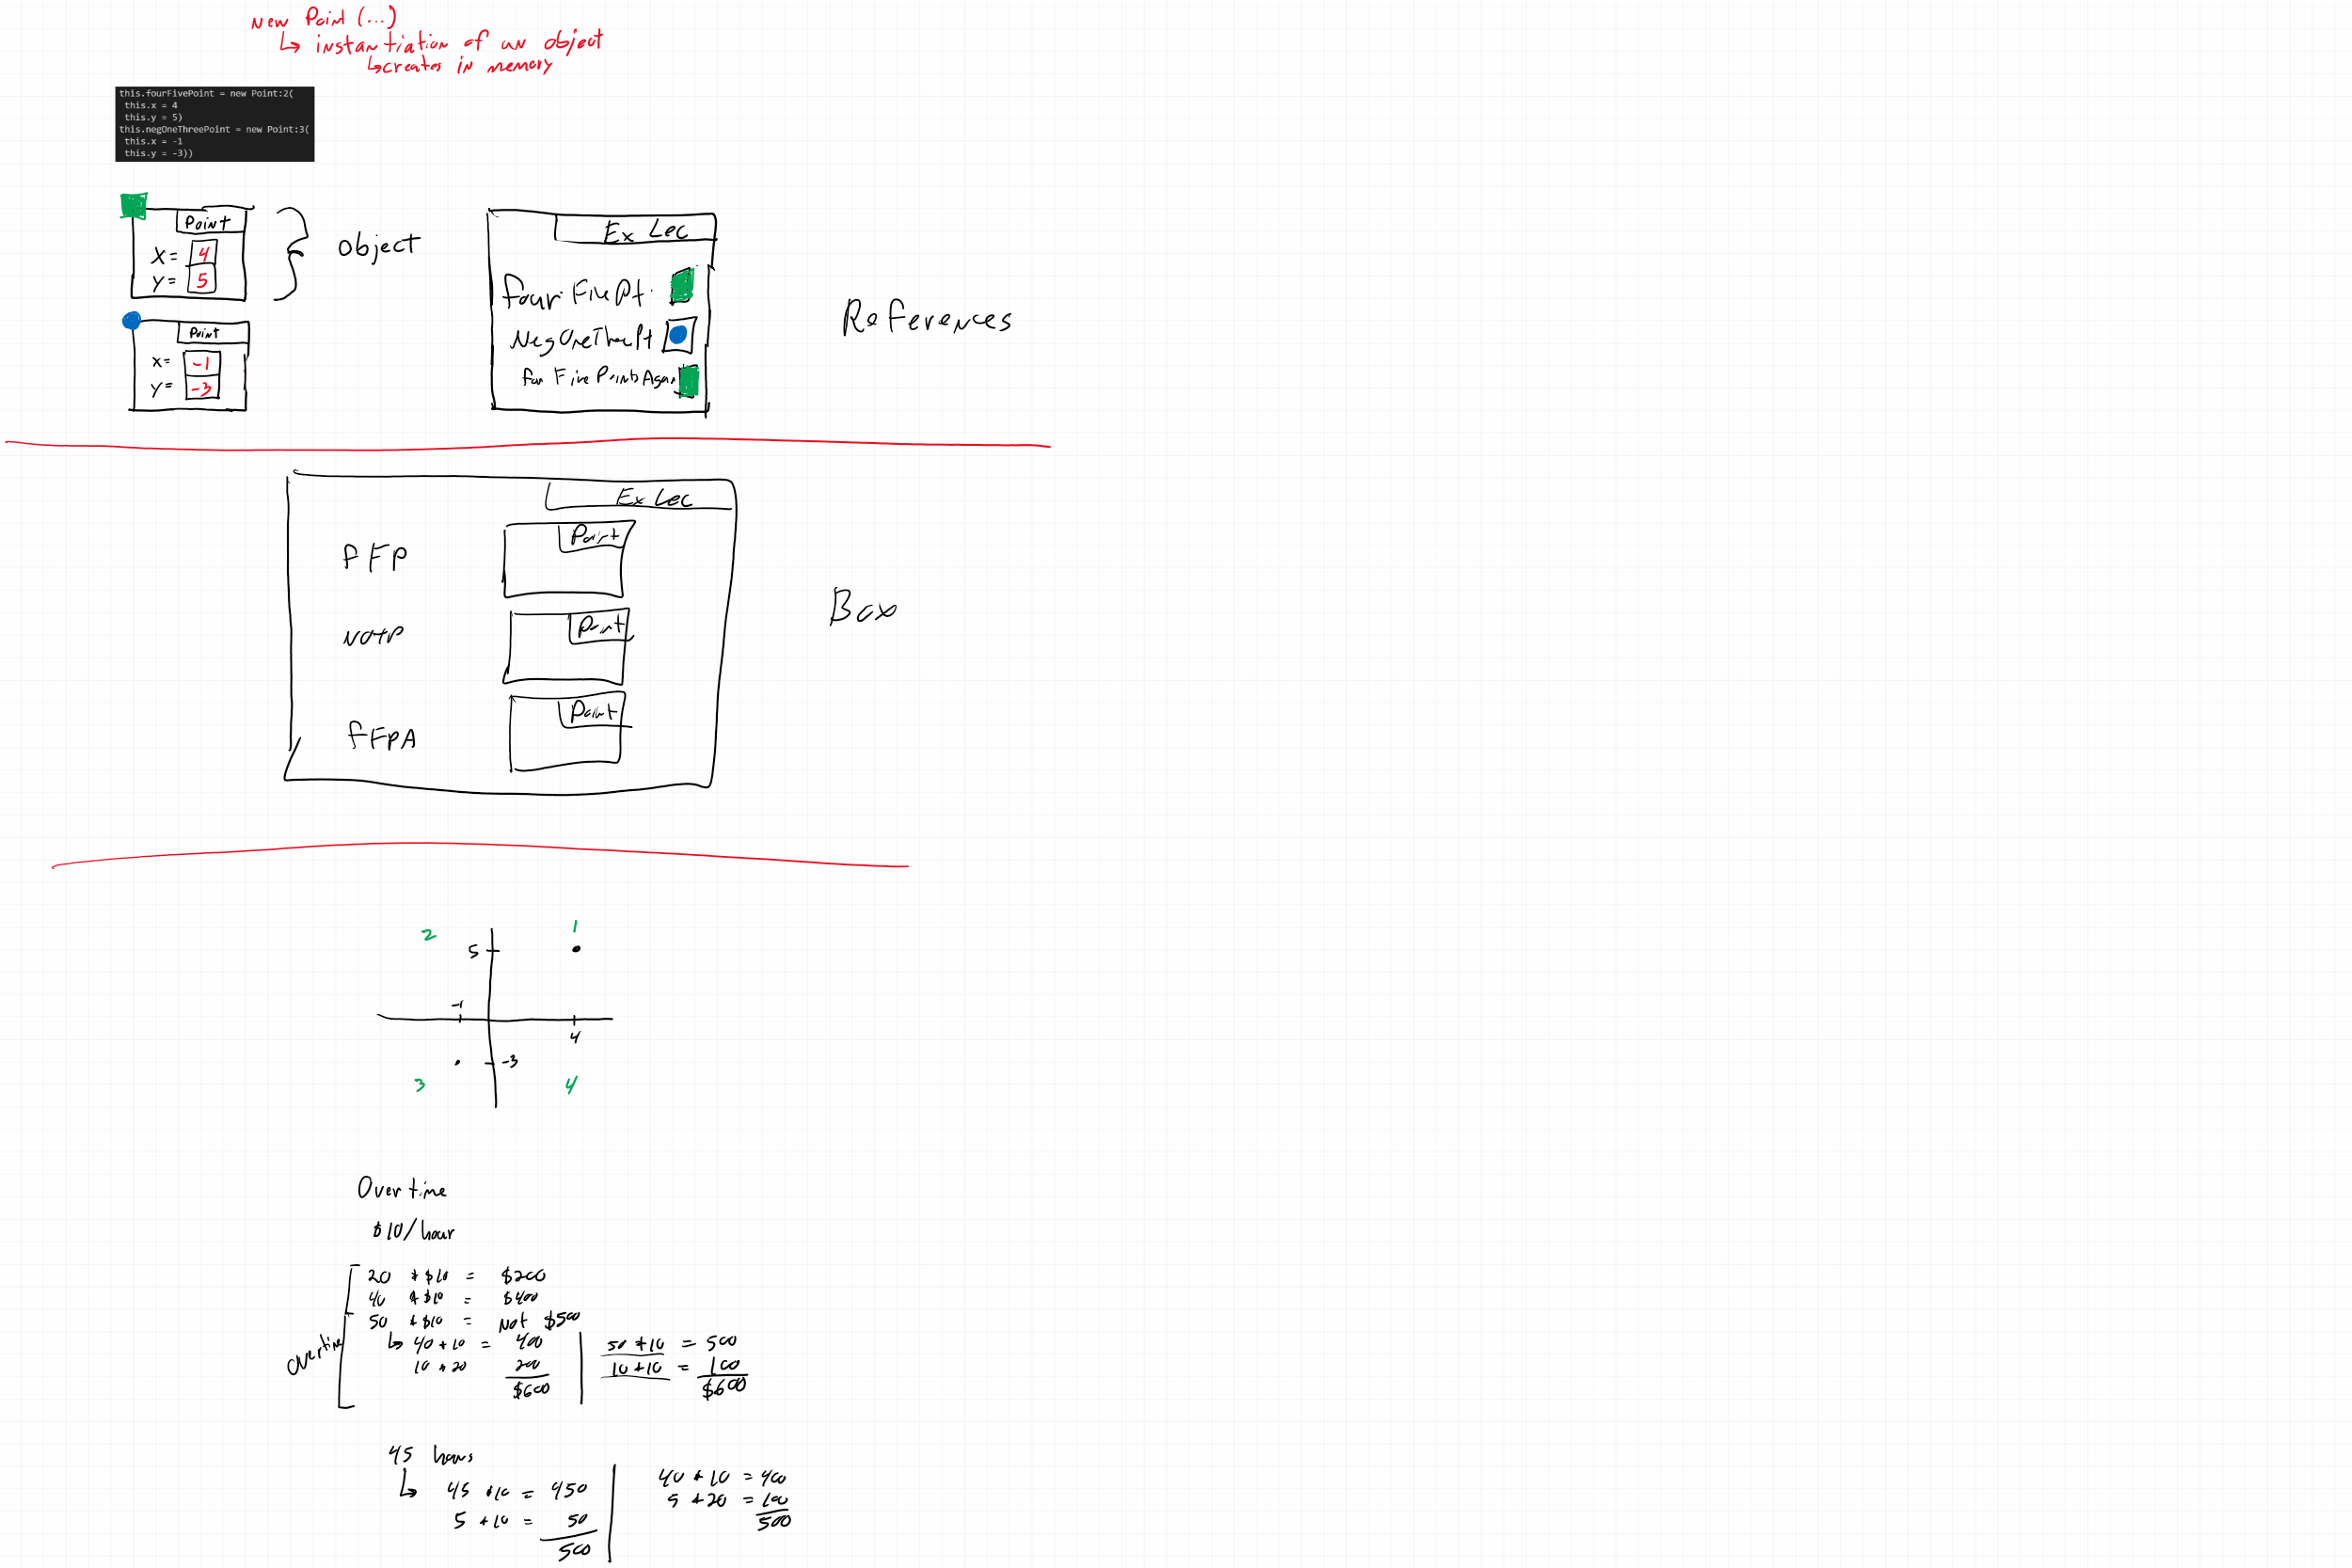 new Point (...)
↳ instantiation of an object
↳ creates in memory
this.fourFivePoint = new Point:2(
this.x = 4
this.y = 5)
this.negOneThreePoint = new Point:3(
this.x = -1
this.y = -3))
Point
X = 4
Y = 5
Object
Point
X = -1
Y = -3
Ex Lec
four FivePt.
NegOneThePt
Five Points Again
References
Ex Lec
fFP
Point
NOTP
Point
fFPA
Point
Box
2
1
5
-1
4
-3
3
4
Overtime
$10/hour
20 * $10 = $200
40 * $10 = $400
50 * $10 = Not $500
Overtime
↳ 40 * 10 = 400
10 * 20 200
$600
50 * 10 = 500
10 * 10 = 100
$600
45 hours
↳ 45 * 10 = 450
5 * 10 = 50
500
40 * 10 = 400
5 * 20 = 100
500